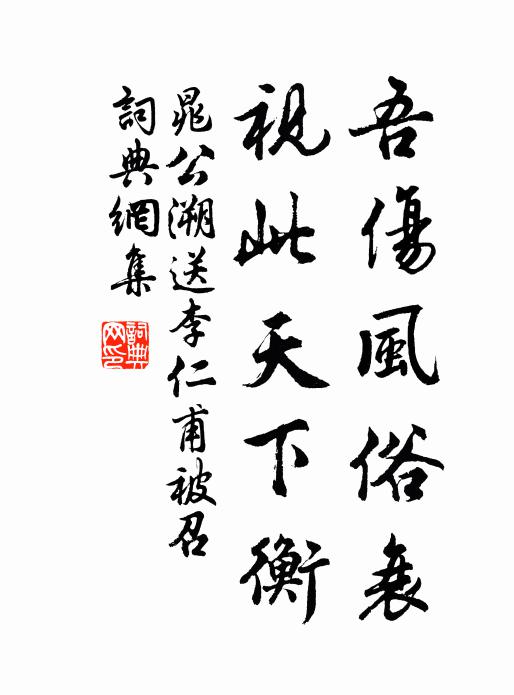 吾傷風俗衰
視此天下衡
晁公溯送李仁甫被召
詞典網集
詞典网印